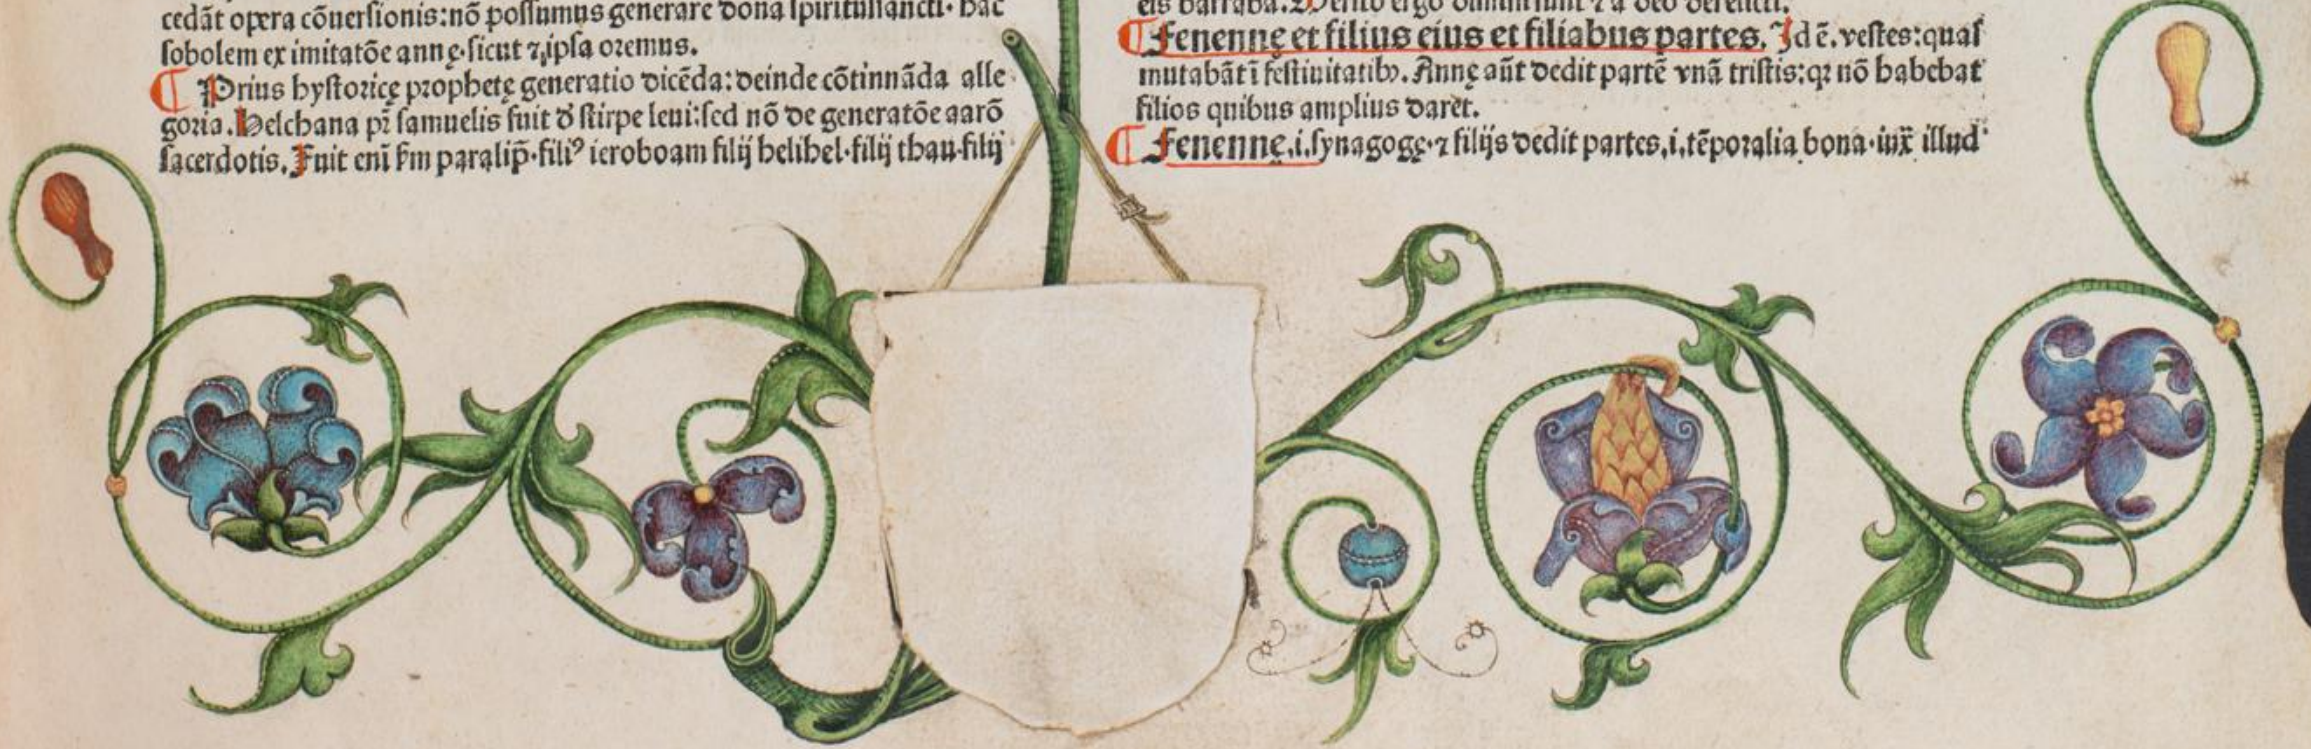 cedãt opera cõuersionis: nõ possumus generare dona spiritussancti. hac
sobolem ex imitatõe annę. sicut ⁊ ipsa oremus.
¶ Prius hystoricę prophetę generatio dicẽda: deinde cõtinnãda alle
goria. Helchana pr̃ samuelis fuit d̕ stirpe leui: sed nõ de generatõe aarõ
sacerdotis. Fuit eni ẜm paralip̃. filiꝰ ieroboam filij helihel. filij thau. filij
eis barraba. Merito ergo ⁊ a deo
¶ Fenennę et filius eius et filiabus partes. Id ẽ. vestes: quas
mutabãt ĩ festiuitatibꝫ. Annę aũt dedit partẽ vnã tristis: qꝛ nõ habebat
filios quibus amplius daret.
¶ Fenennę. i. synagogę. ⁊ filijs dedit partes. i. tẽporalia bona. iux̃ illud